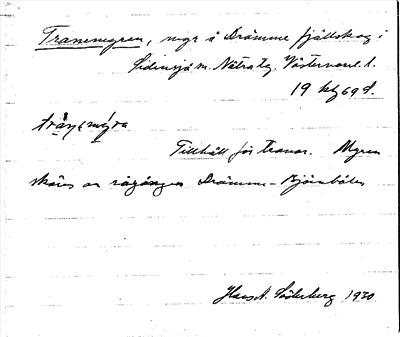 Tranemyran, myr å Drömme fjällskog i
Sidensjö sn. Nätra tg. Västernorrl. l.
19 kbg9d.
tràn̥emýra
Tillhåll för tranor. Myren
skäres av rågången Drömme–Björnböle
Hans A. Söderberg 1930